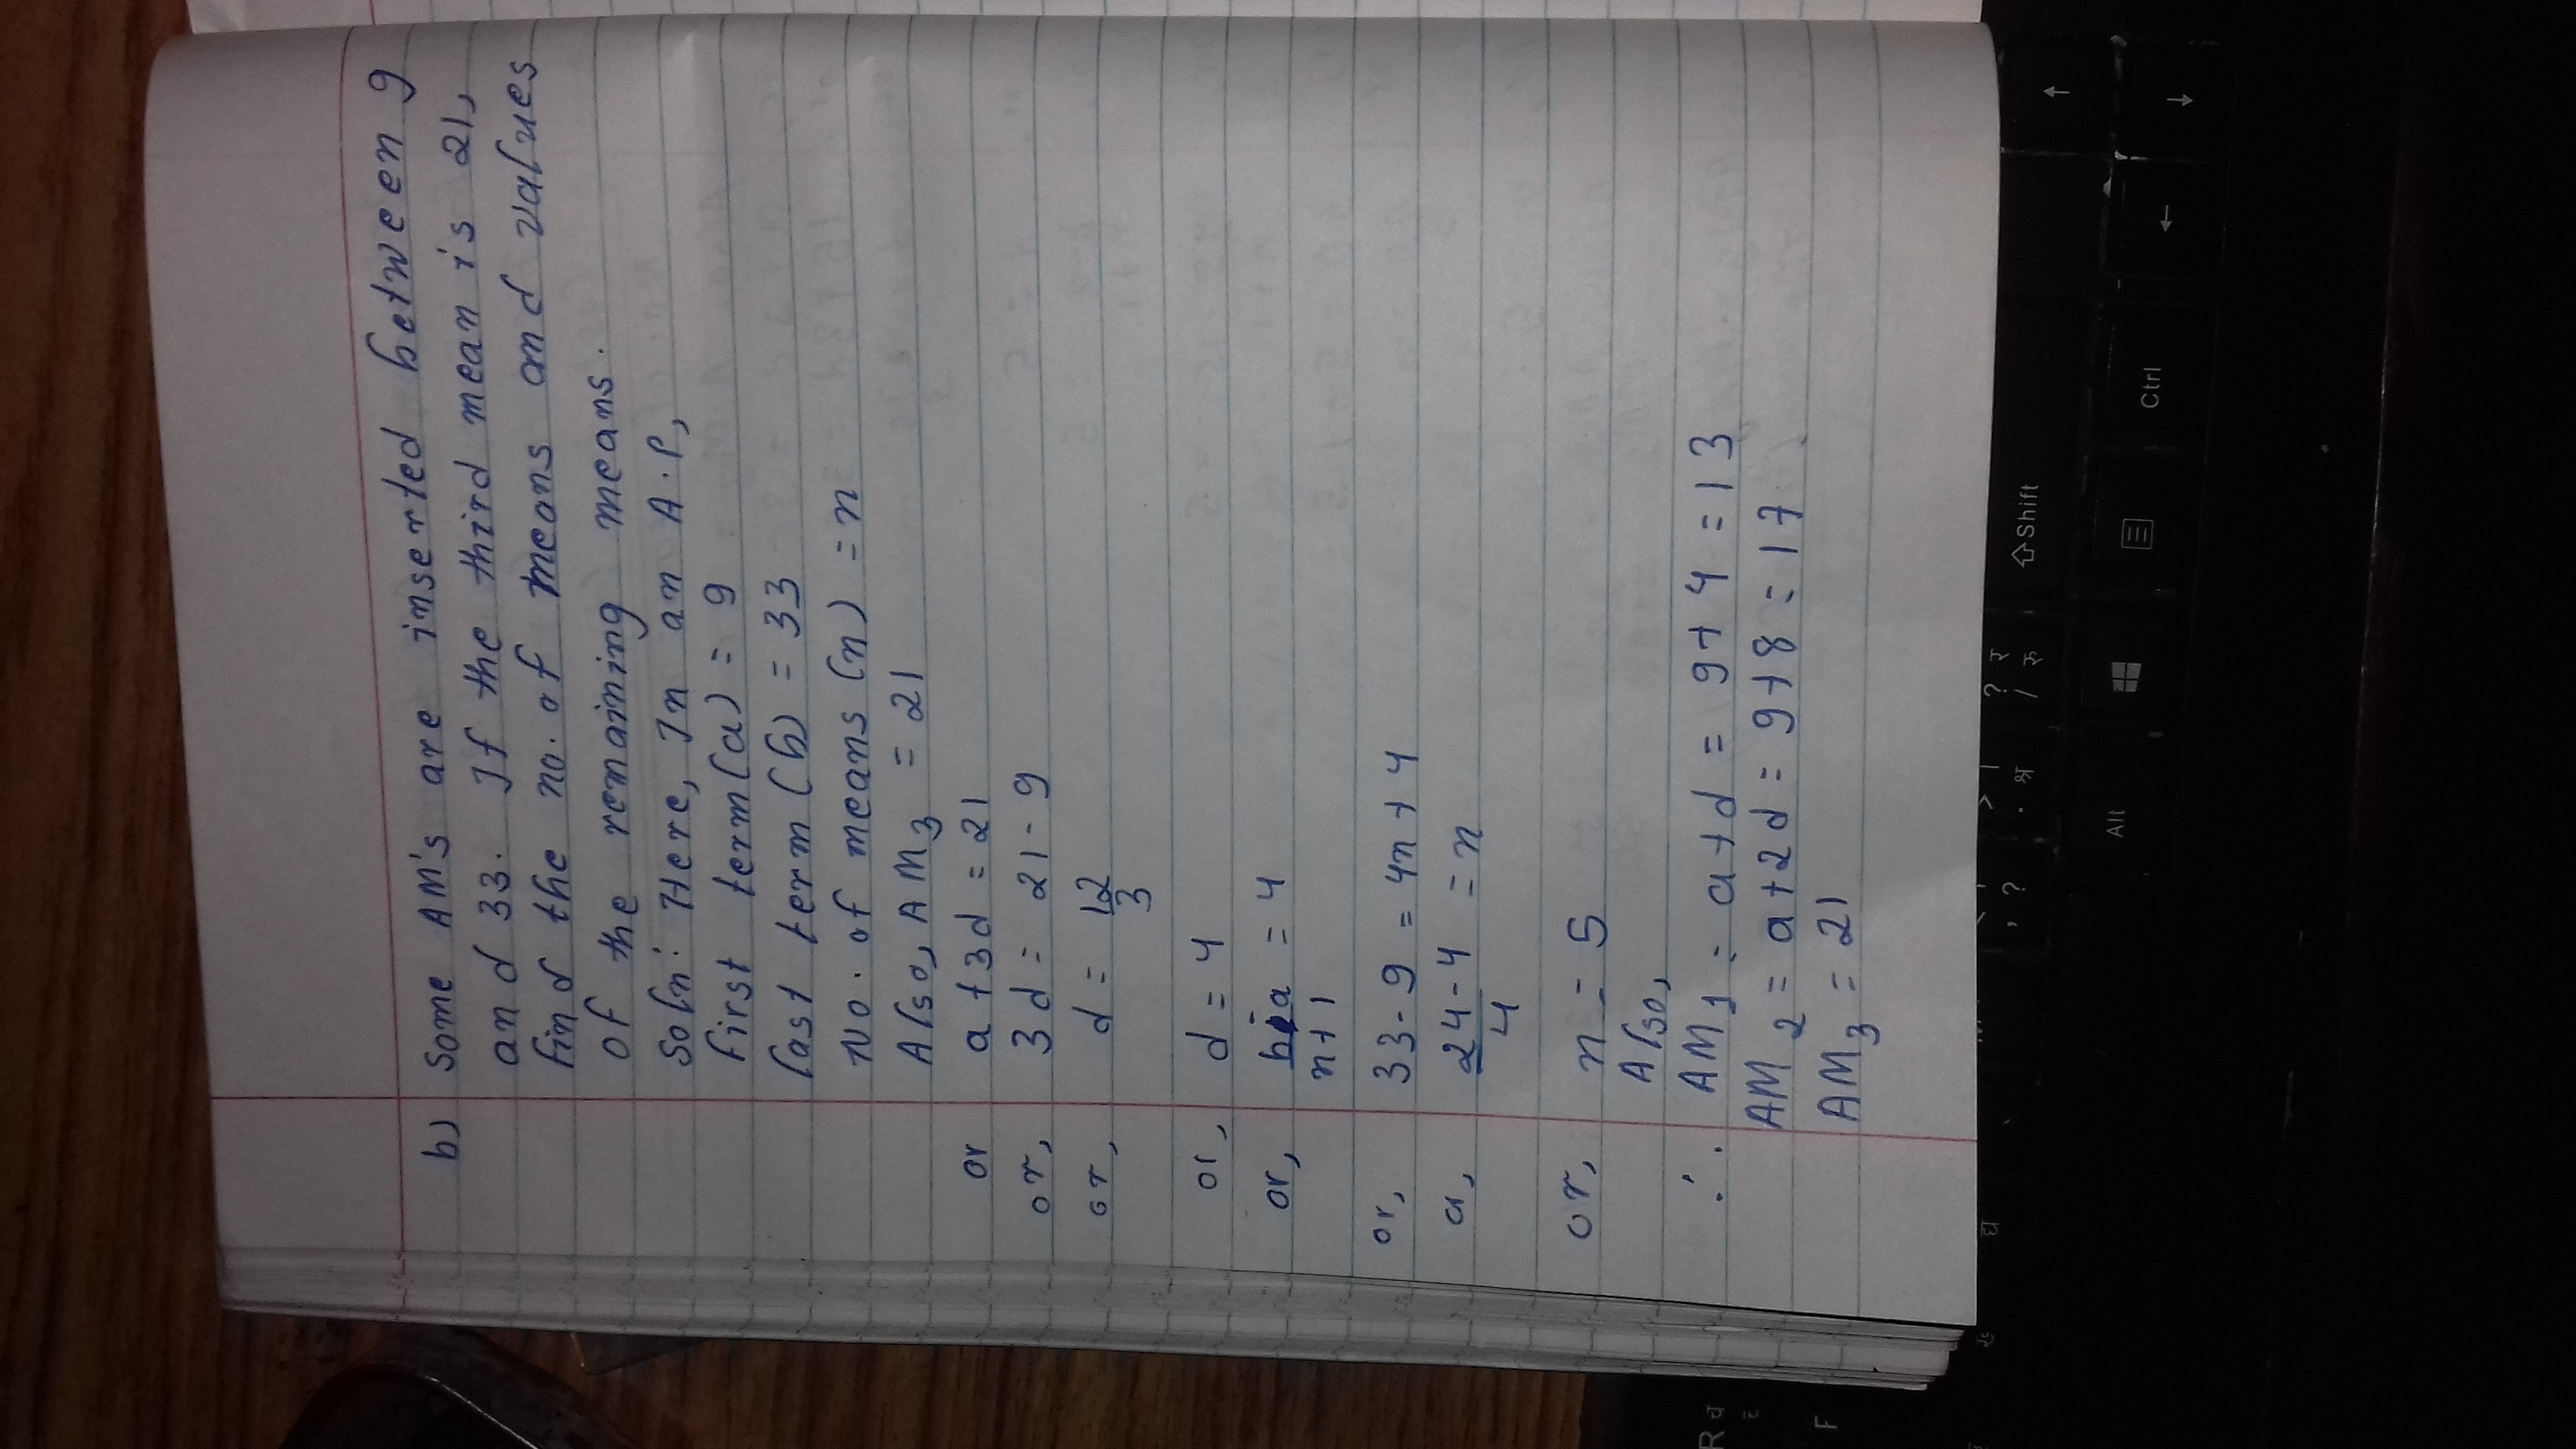 b) Some AM's are inserted between 9
and 33. If the third mean is 21,
find the no. of means and values
of the remaining means.
Soln: Here, In an A.P,
first term (a) = 9
last term (b) = 33
No. of means (n) = n
Also, AM3 = 21
or a + 3d = 21
or, 3d = 21 - 9
or, d = 12/3
or, d = 4
or, b-a/n+1 = 4
or, 33 - 9 = 4n + 4
or, 24-4/4 = n
or, n = 5
Also,
∴ AM1 = a + d = 9 + 4 = 13
AM2 = a + 2d = 9 + 8 = 17
AM3 = 21
⇧Shift
Ctrl
Alt
? र
/ रु
> ।
. श्र
, ?
R च
F
↑
↓
←